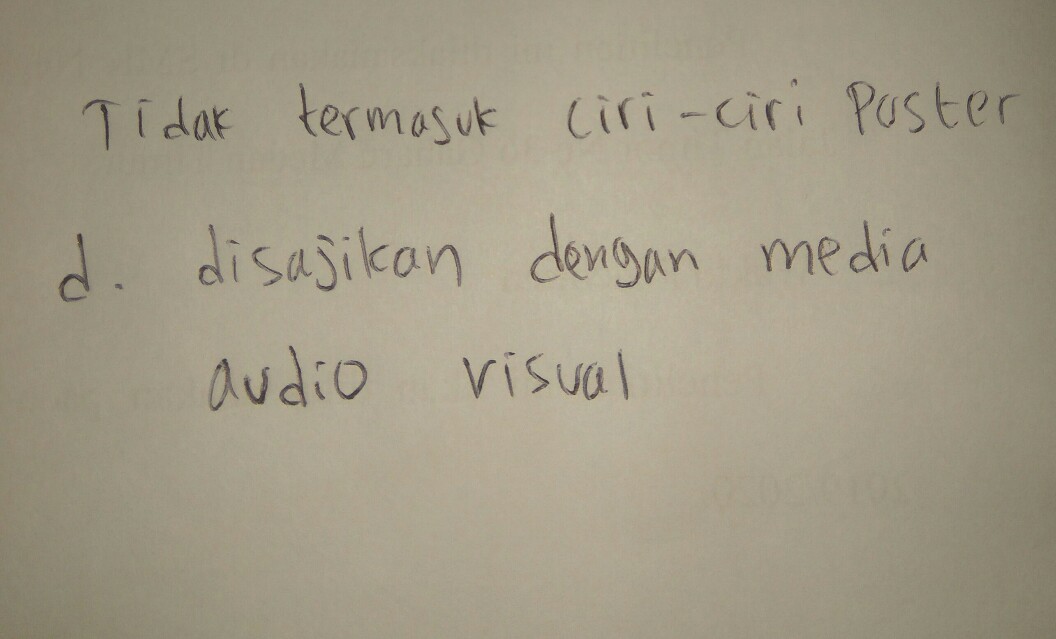 Tidak termasuk ciri-ciri Poster
d. disajikan dengan media
audio visual